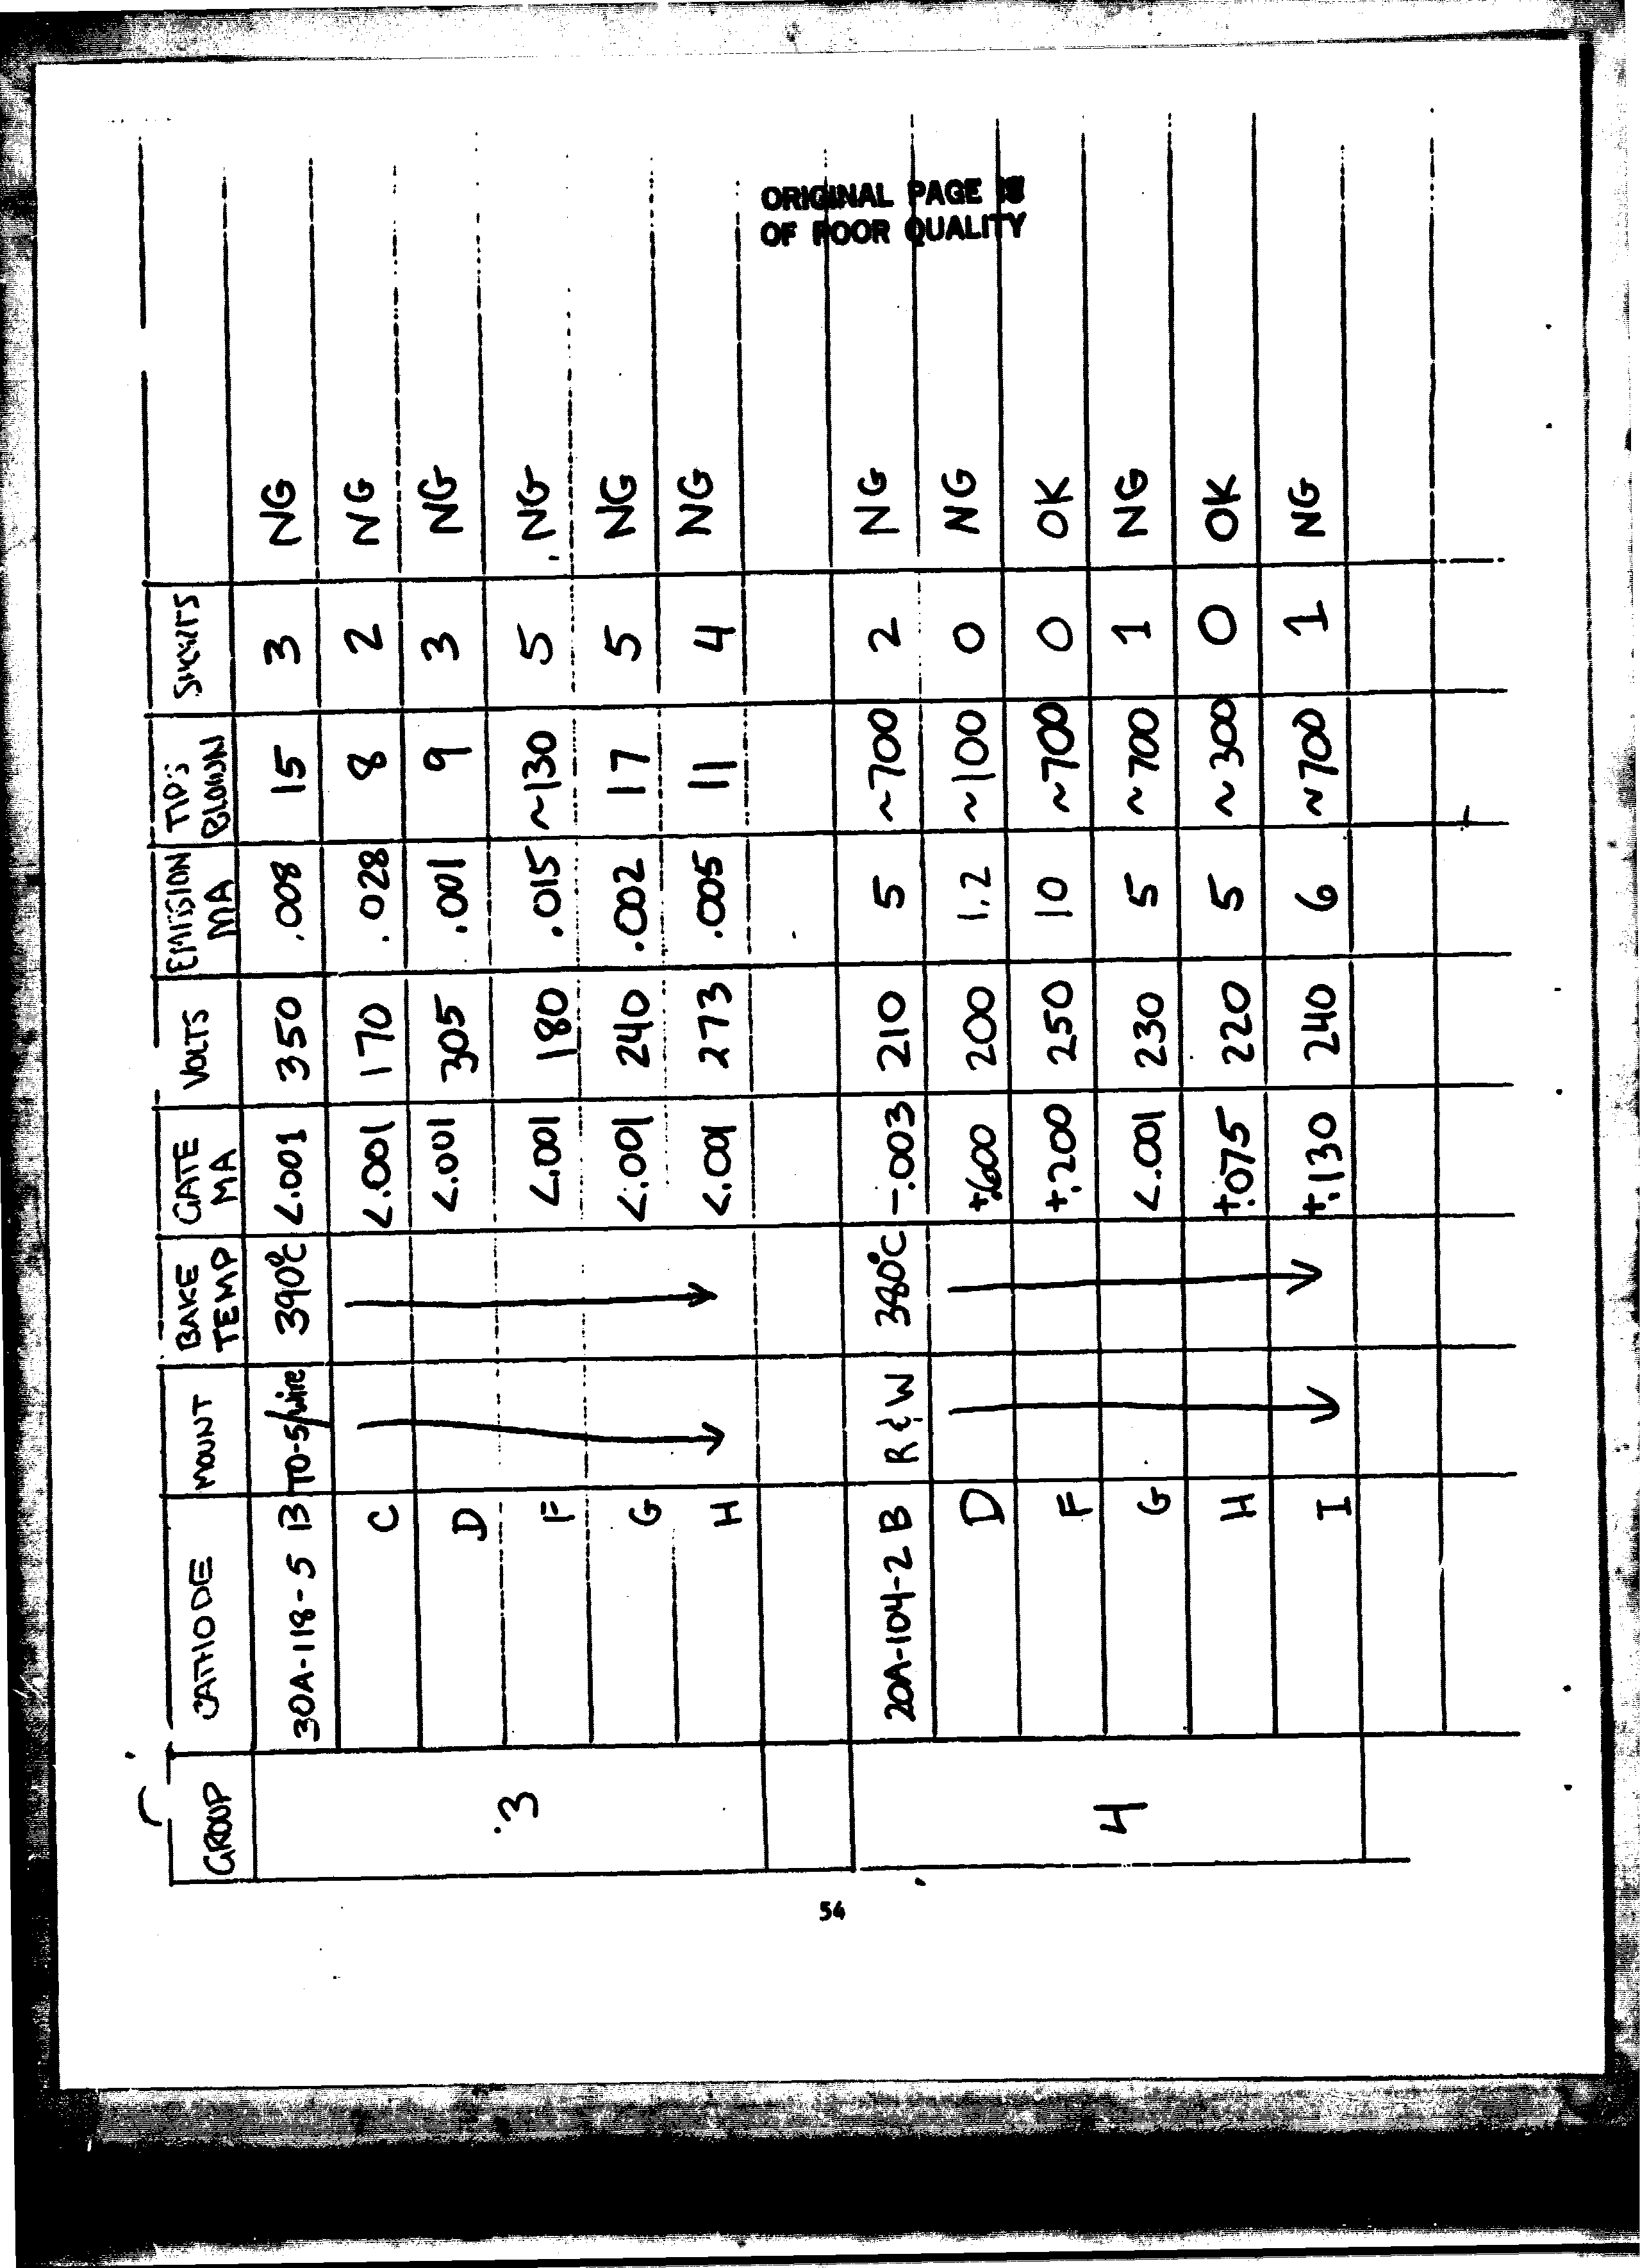 ORIGINAL PAGE IS
OF POOR QUALITY
GROUP CATHODE MOUNT BAKE TEMP GATE MA VOLTS EMISSION MA TIPS BLOWN SHORTS
3 30A-118-5 B TO-5/wire 390°C <.001 350 .008 15 3 NG
C <.001 170 .028 8 2 NG
D <.001 305 .001 9 3 NG
F <.001 180 .015 ~130 5 NG
G <.001 240 .002 17 5 NG
H <.001 273 .005 11 4 NG
4 20A-104-2 B R & W 380°C -.003 210 5 ~700 2 NG
D +.600 200 1.2 ~100 0 NG
F +.200 250 10 ~700 0 OK
G <.001 230 5 ~700 1 NG
H +.075 220 5 ~300 0 OK
I +.130 240 6 ~700 1 NG
54